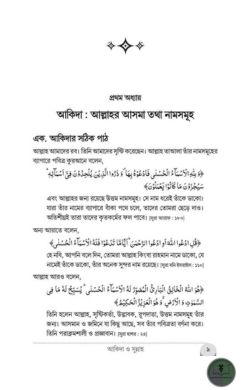 প্রথম অধ্যায়
আকিদা : আল্লাহর আসমা তথা নামসমূহ
এক. আকিদার সঠিক পাঠ
আল্লাহ আমাদের রব। তিনি আমাদের সৃষ্টি করেছেন। আল্লাহ তাআলা তাঁর নামসমূহের
ব্যাপারে পবিত্র কুরআনে বলেন,
﴿وَلِلّٰهِ الْاَسْمَآءُ الْحُسْنٰى فَادْعُوْهُ بِهَا ۪ وَ ذَرُوا الَّذِیْنَ یُلْحِدُوْنَ فِیْۤ اَسْمَآئِهٖ ؕ
سَیُجْزَوْنَ مَا كَانُوْا یَعْمَلُوْنَ﴾
এবং আল্লাহর জন্য রয়েছে উত্তম নামসমূহ। সে নাম ধরেই তাঁকে ডাকো।
যারা তাঁর নামের ব্যাপারে বাঁকা পথে চলে, তাদের তোমরা ছেড়ে দাও।
অতিশীঘ্রই তারা তাদের কৃতকর্মের ফল পাবে। [সুরা আরাফ : ১৮০]
অন্য আয়াতে বলেন,
﴿قُلِ ادْعُوا اللّٰهَ اَوِ ادْعُوا الرَّحْمٰنَ ؕ اَیًّا مَّا تَدْعُوْا فَلَهُ الْاَسْمَآءُ الْحُسْنٰى﴾
হে নবি, আপনি বলে দিন, তোমরা আল্লাহ কিংবা রাহমান নামে ডাকো, যে
নামেই তাঁকে ডাকো, তাঁর অনেক সুন্দর নাম রয়েছে। [সুরা বনি ইসরাইল : ১১০]
আল্লাহ আরও বলেন,
﴿هُوَ اللّٰهُ الْخَالِقُ الْبَارِئُ الْمُصَوِّرُ لَهُ الْاَسْمَآءُ الْحُسْنٰى ؕ یُسَبِّحُ لَهٗ مَا فِی
السَّمٰوٰتِ وَ الْاَرْضِ ۚ وَ هُوَ الْعَزِیْزُ الْحَكِیْمُ﴾
তিনি হলেন আল্লাহ, সৃষ্টিকর্তা, উদ্ভাবক, রূপদাতা, উত্তম নামসমূহ তাঁর
জন্য। আসমান ও জমিনে যা কিছু আছে, সব তাঁর পবিত্রতা বর্ণনা করে।
তিনি পরাক্রমশালী ও প্রজ্ঞাবান। [সুরা হাশর : ২৪]
আকিদা ও সুন্নাহ
৯